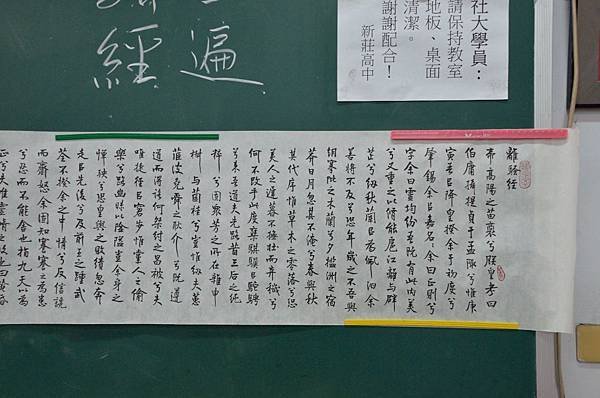 經遍
社大學員：
請保持教室
地板、桌面
清潔。
謝謝配合！
新莊高中
離騷經
帝高陽之苗裔兮朕皇考曰
伯庸攝提貞于孟陬兮惟庚
寅吾㠯降皇揆余于初度兮
肇錫余㠯嘉名余曰正則兮
字余曰靈均紛吾既有此内美
兮又重之以脩能扈江離與辟
芷兮紉秋蘭㠯為佩汩余
若將不及兮恐年歲之不吾與
朝搴阰之木蘭兮夕攬洲之宿
莽日月忽其不淹兮春與秋
其代序惟草木之零落兮恐
美人之遲暮不撫壯而棄穢兮
何不改乎此度乘騏驥㠯馳騁
兮來吾道夫先路昔三后之純
粹兮固衆芳之所在雜申
椒與菌桂兮豈惟紉夫蕙
茝彼堯舜之耿介兮既遵
道而得路何桀紂之昌被兮夫
唯捷徑㠯窘步惟黨人之偷
樂兮路幽昧以險隘豈余身之
憚殃兮恐皇輿之敗績忽奔
走㠯先後兮及前王之踵武
荃不揆余之中情兮反信讒
而齌怒余固知謇謇之為患
兮忍而不能舍也指九天以為
正兮夫唯靈脩之故也曰黃昏